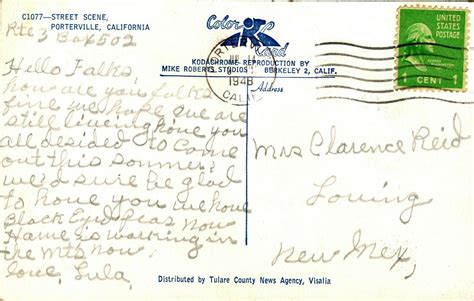 C1077—STREET SCENE,
PORTERVILLE, CALIFORNIA
Rte 3 Box 502
Hello Folks,
how are you folks
fine we hope. we are
still living hope you
all desided to come
out this sommer.
we'd sure be glad
to have you we have
Black Eyed peas now
Name is working in
the Mts now.
love, Lula,
Color
Card
KODACHROME REPRODUCTION BY
MIKE ROBERTS STUDIOS
BERKELEY 2, CALIF.
Address
1948
CALIF
UNITED
STATES
POSTAGE
1 CENT 1
Mrs Clarence Reid
Loving
New Mex,
Distributed by Tulare County News Agency, Visalia